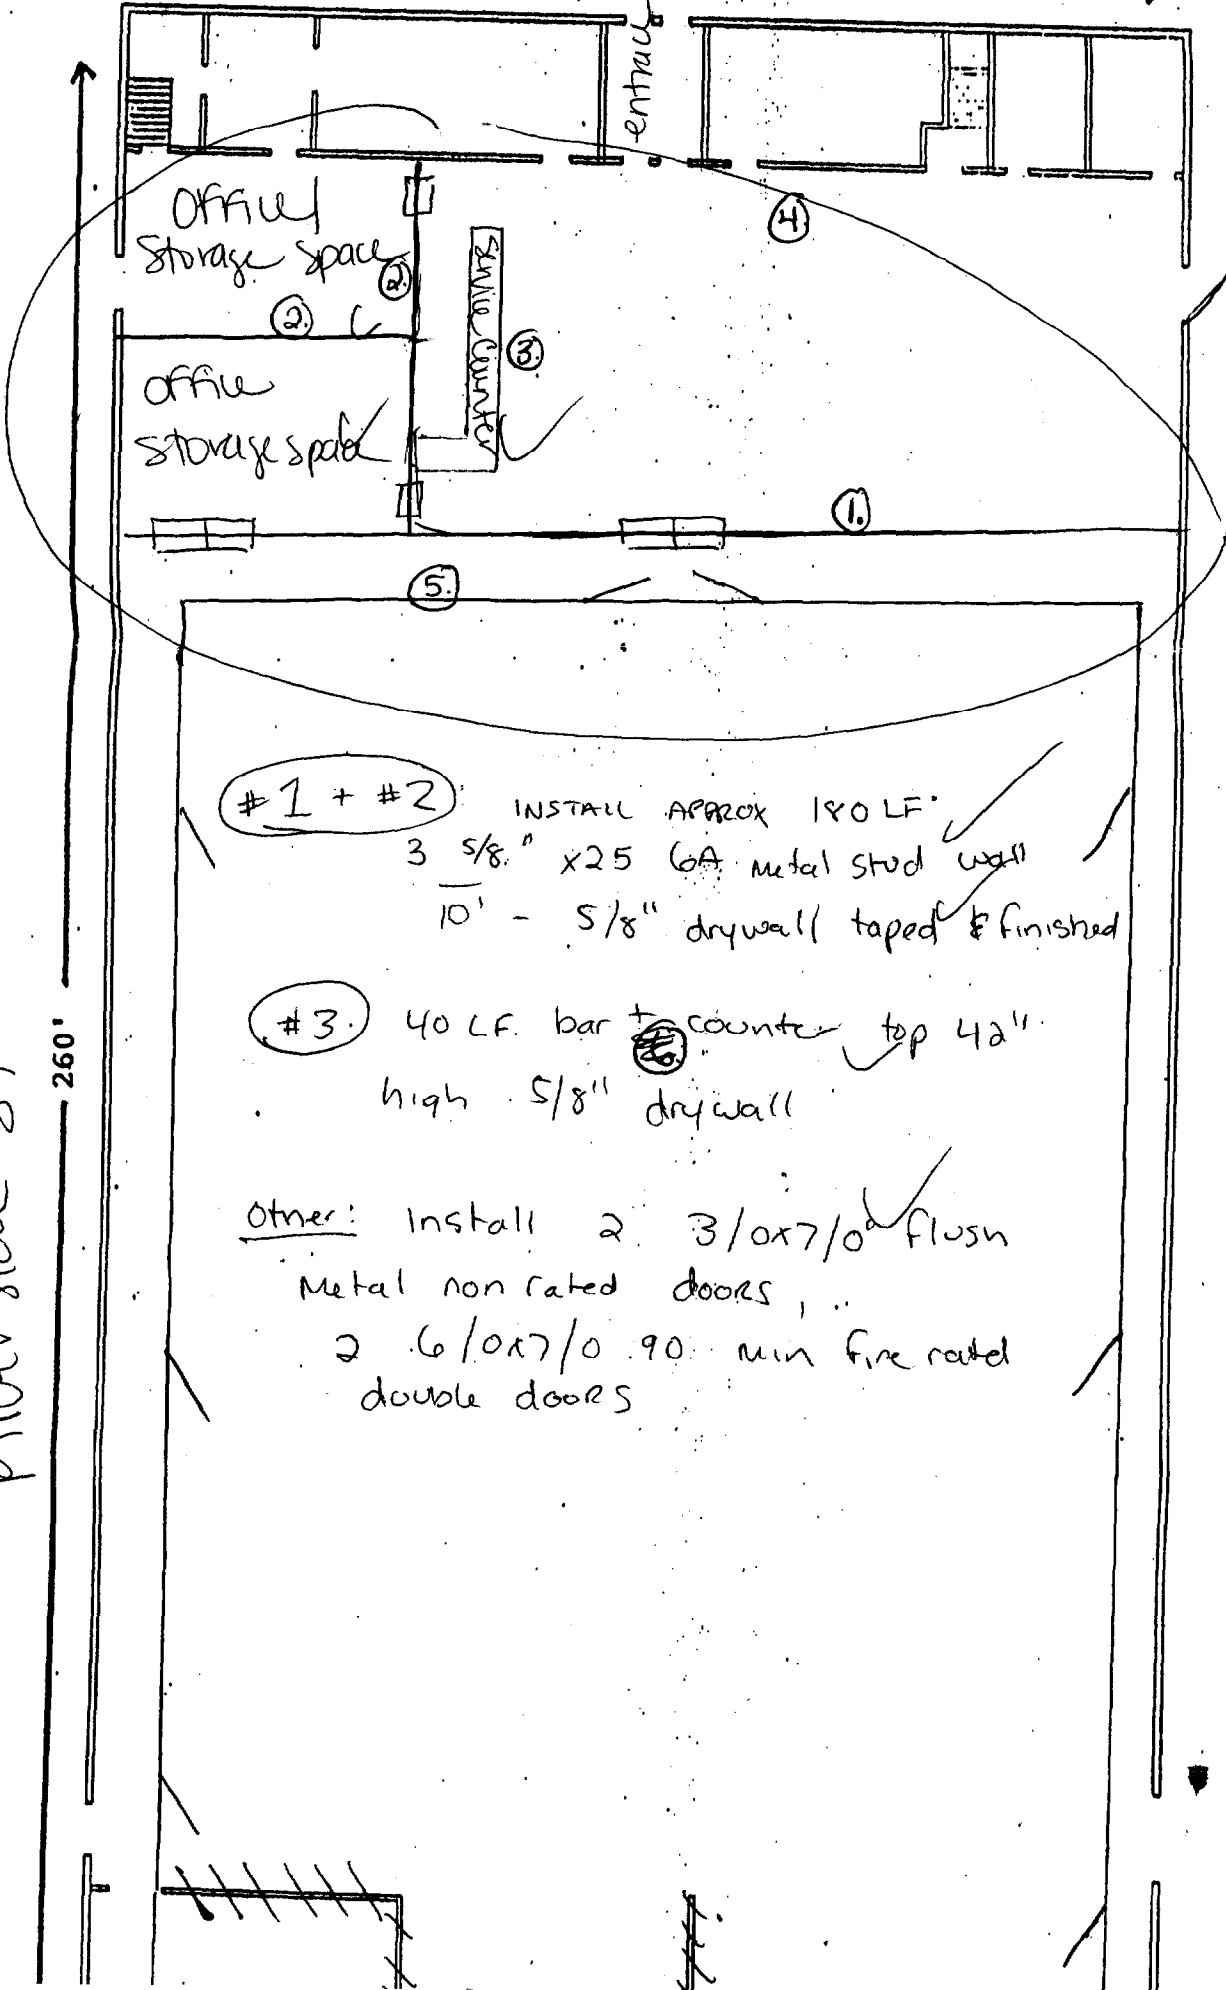 entrance
Office/
Storage space
2.
2.
4
Service Counter
3.
Office
Storage space
1.
5.
#1 + #2: INSTALL APPROX 180 LF.
3 5/8" x25 GA Metal Stud wall
10' - 5/8" drywall taped & finished
#3. 40 LF. bar + counter top 42"
high 5/8" drywall
Other: Install 2 3/0x7/0 flush
Metal non rated doors,
2 6/0x7/0 90 min fire rated
double doors
260'